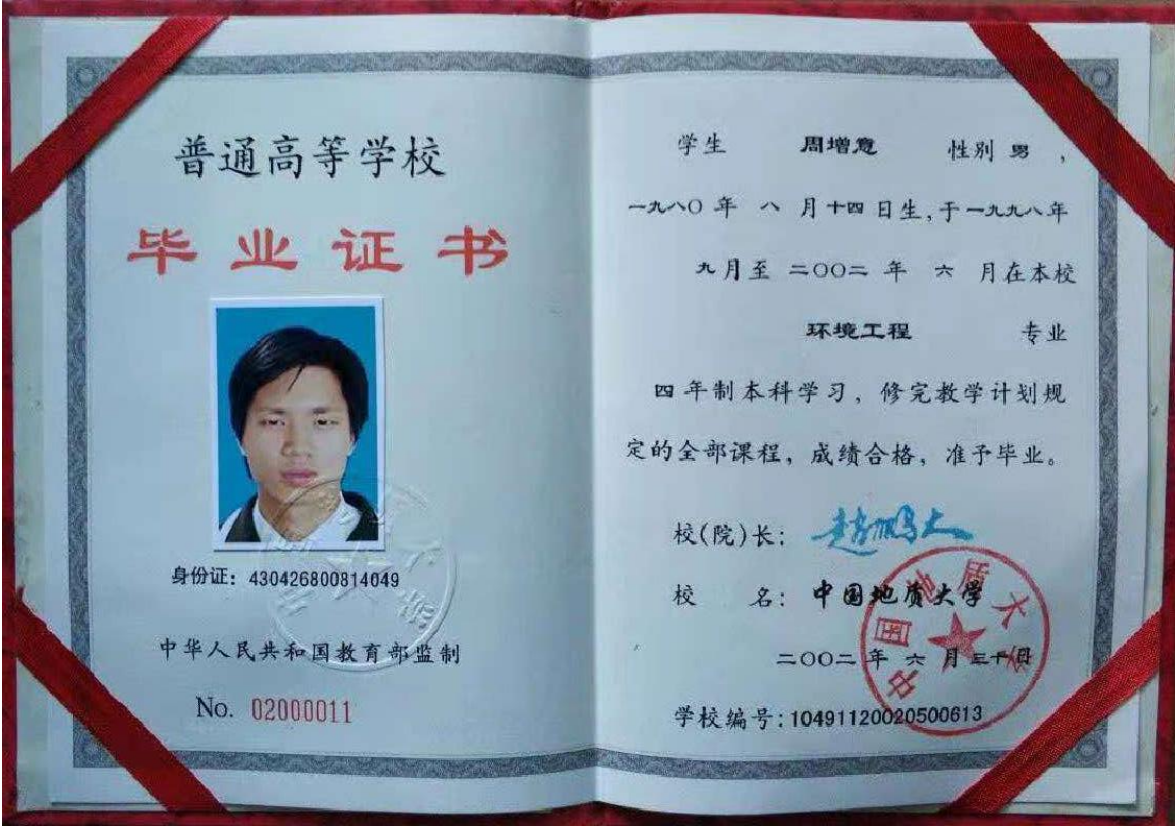 普通高等学校
毕业证书
身份证：430426800814049
中华人民共和国教育部监制
No. 02000011
学生 周增意 性别 男，
一九八〇年 八 月十四日生，于一九九八年
九月至 二〇〇二 年 六 月在本校
环境工程 专业
四年制本科学习，修完教学计划规
定的全部课程，成绩合格，准予毕业。
校(院)长：赵鹏大
校 名：中国地质大学
二〇〇二年六月三十日
学校编号：10491120020500613
中国地质大学